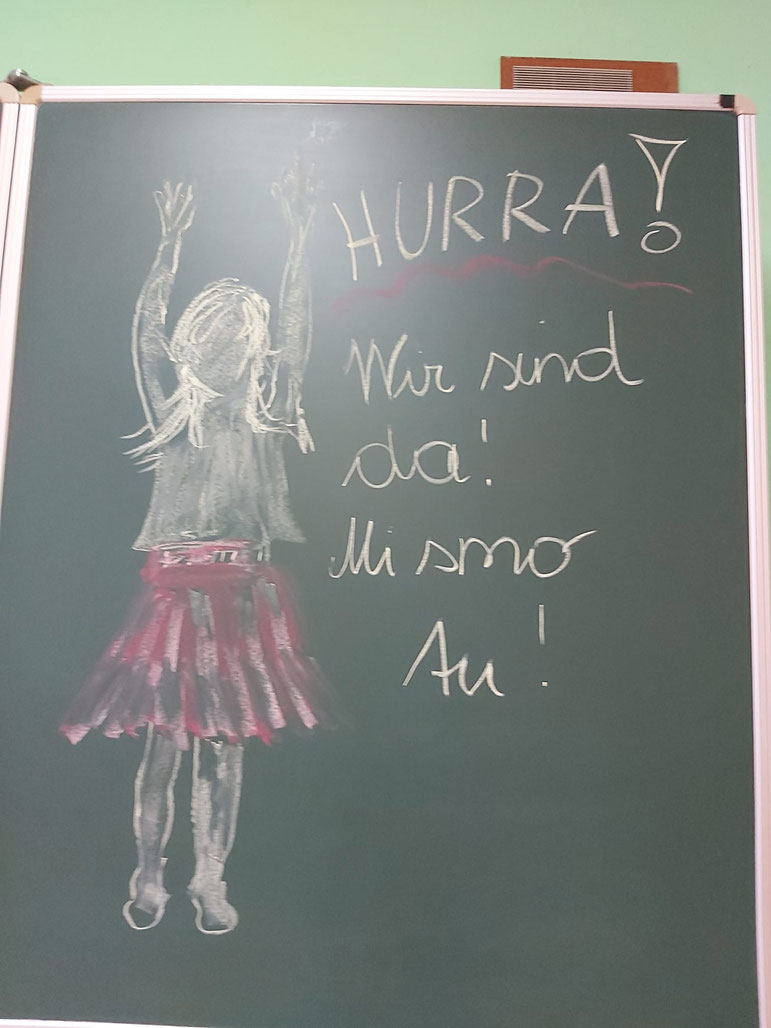 HURRA!
Wir sind
da!
Mi smo
tu!